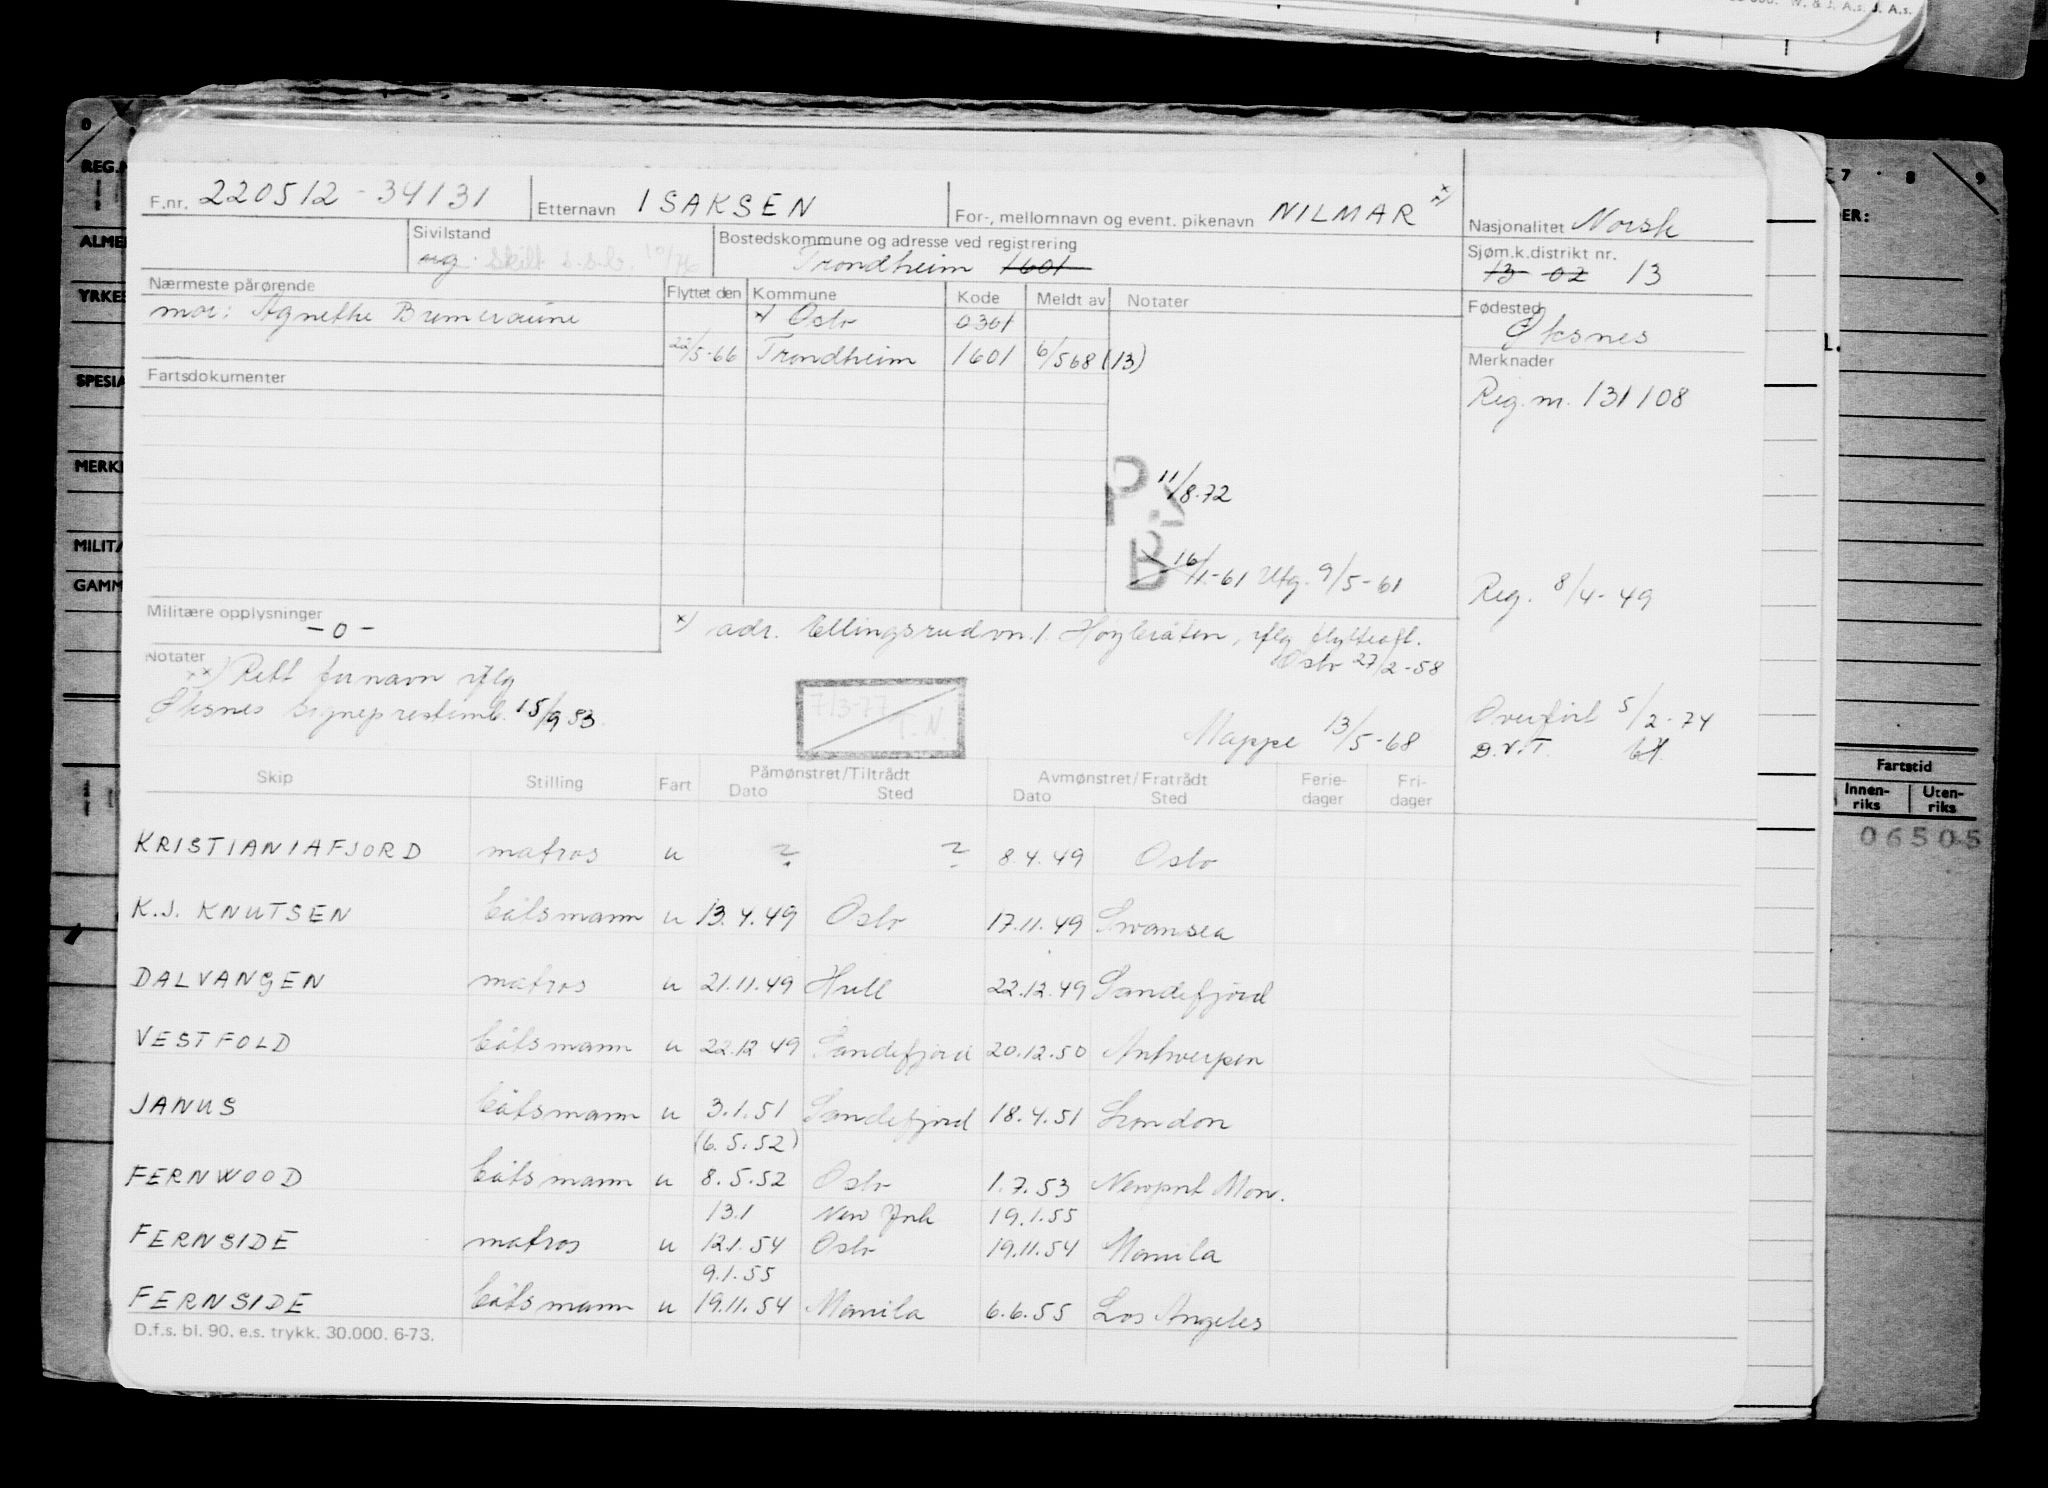 W. & J. A.s. J. A.s.
REG.N
ALME
YRKES
SPESIA
MERK
MILITÆ
GAMM
7 8 9
ER:
F.nr. 220512-34131 Etternavn ISAKSEN For-, mellomnavn og event. pikenavn NILMAR x) Nasjonalitet Norsk
Sivilstand ug. Skilt s.s.b. 10/76 Bostedskommune og adresse ved registrering Trondheim 1601 Sjøm.k.distrikt nr. 13 02 13
Nærmeste pårørende Flyttet den Kommune Kode Meldt av Notater Fødested Øksnes
mor: Agnethe x) Oslo 0301
22/5-66 Trondheim 1601 6/5 68 (13)
Merknader
Reg.nr. 131108
Fartsdokumenter
P. 11/8-72
B 16/1-61 Utg. 9/5-61
Reg. 8/4-49
Militære opplysninger -0-
x) adr. Ellingsrudvn. 1 Høybråten, iflg flytteofl.
Oslo 27/2-58
Notater xx) Rett fornavn iflg
Øksnes sogneprestemb. 15/9 53
7/3-77 T.N.
Mappe 13/5-68
Overført 5/2-74
D.V.T.
Skip Stilling Fart Påmønstret/Tiltrådt Dato Sted Avmønstret/Fratrådt Dato Sted Ferie-dager Fri-dager
KRISTIANIAFJORD matros u ? ? 8.4.49 Oslo
K.J. KNUTSEN båtsmann u 13.4.49 Oslo 17.11.49 Swansea
DALVANGEN matros u 21.11.49 Hull 22.12.49 Sandefjord
VESTFOLD båtsmann u 22.12 49 Sandefjord 20.12.50 Antwerpen
JANUS båtsmann u 3.1.51 Sandefjord 18.4.51 London
(6.5.52)
FERNWOOD båtsmann u 8.5.52 Oslo 1.7.53 Newport Mon.
13.1 New York 19.1.55
FERNSIDE matros u 12.1.54 Oslo 19.11.54 Manila
9.1.55
FERNSIDE båtsmann u 19.11.54 Manila 6.6.55 Los Angeles
D.f.s. bl. 90. e.s. trykk. 30.000. 6-73.
Fartstid
Innen-riks Uten-riks
06505